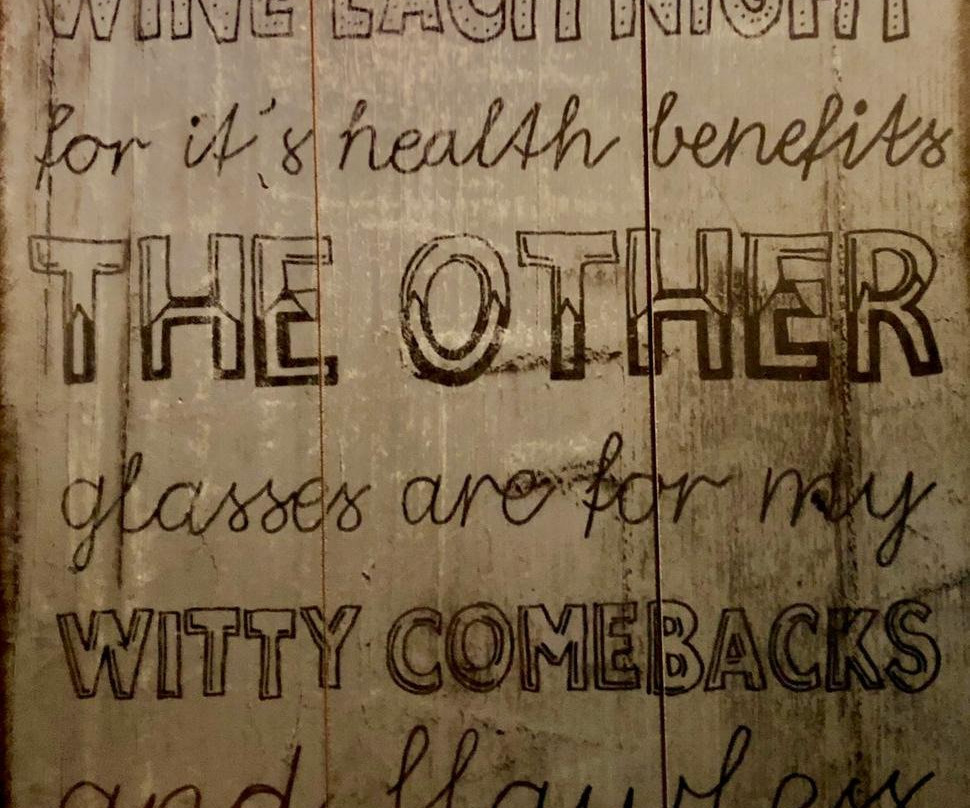 WINE EACH NIGHT
for it's health benefits
THE OTHER
glasses are for my
WITTY COMEBACKS
and